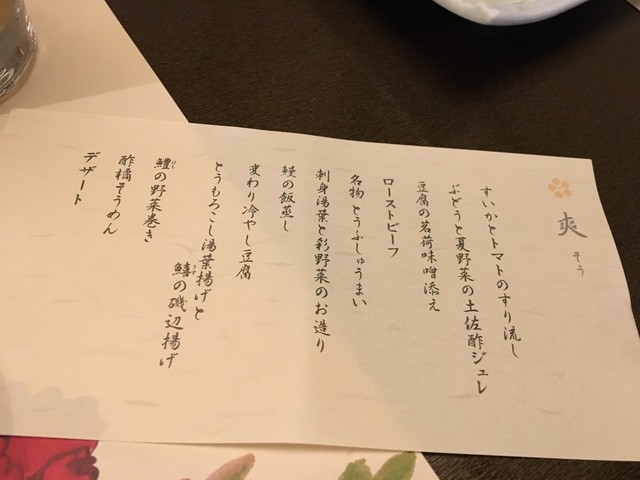 爽 そう
すいかとトマトのすり流し
ぶどうと夏野菜の土佐酢ジュレ
豆腐の茗荷味噌添え
ローストビーフ
名物とうふしゅうまい
刺身湯葉と彩野菜のお造り
鰻の飯蒸し
変わり冷やし豆腐
とうもろこし湯葉揚げと
鱚の磯辺揚げ
鱧の野菜巻き
酢橘そうめん
デザート